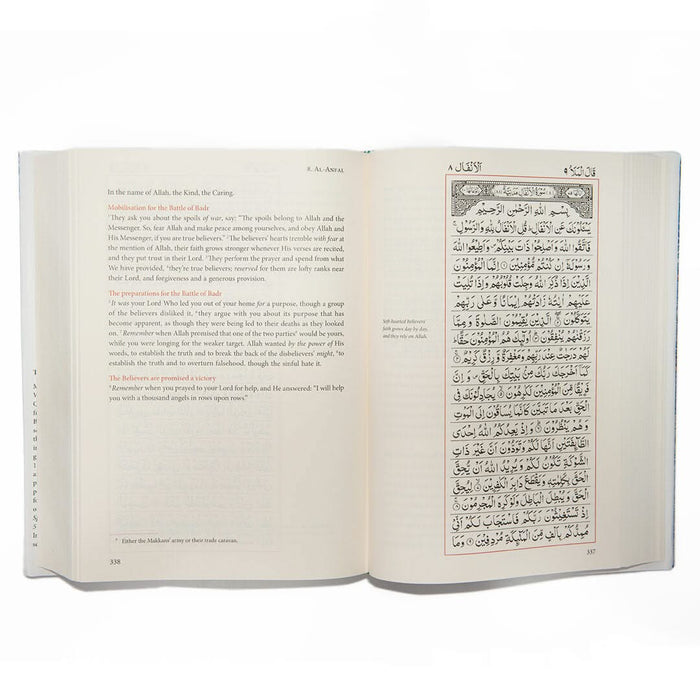 8. Al-Anfal
In the name of Allah, the Kind, the Caring.
Mobilisation for the Battle of Badr
¹They ask you about the spoils of war, say: "The spoils belong to Allah and the
Messenger. So, fear Allah and make peace among yourselves, and obey Allah and
His Messenger, if you are true believers." ²The believers' hearts tremble with fear at
the mention of Allah, their faith grows stronger whenever His verses are recited,
and they put trust in their Lord. ³They perform the prayer and spend from what
We have provided, ⁴they're true believers; reserved for them are lofty ranks near
their Lord, and forgiveness and a generous provision.
The preparations for the Battle of Badr
⁵It was your Lord Who led you out of your home for a purpose, though a group
of the believers disliked it, ⁶they argue with you about its purpose that has
become apparent, as though they were being led to their deaths as they looked
on. ⁷Remember when Allah promised that one of the two parties* would be yours,
while you were longing for the weaker target. Allah wanted by the power of His
words, to establish the truth and to break the back of the disbelievers' might, ⁸to
establish the truth and to overturn falsehood. though the sinful hate it.
The Believers are promised a victory
⁹Remember when you prayed to your Lord for help, and He answered: "I will help
you with a thousand angels in rows upon rows".
* Either the Makkans' army or their trade caravan.
338
الانفال ٨
قال الملا ٩
بِسْمِ اللّٰهِ الرَّحْمٰنِ الرَّحِيْمِ
يَسْـَٔلُوْنَكَ عَنِ الْاَنْفَالِ ؕ قُلِ الْاَنْفَالُ لِلّٰهِ وَالرَّسُوْلِ ۚ
فَاتَّقُوا اللّٰهَ وَاَصْلِحُوْا ذَاتَ بَيْنِكُمْ ۪ وَاَطِيْعُوا اللّٰهَ
وَرَسُوْلَهٗۤ اِنْ كُنْتُمْ مُّؤْمِنِيْنَ ① اِنَّمَا الْمُؤْمِنُوْنَ
الَّذِيْنَ اِذَا ذُكِرَ اللّٰهُ وَجِلَتْ قُلُوْبُهُمْ وَاِذَا تُلِيَتْ
عَلَيْهِمْ اٰيٰتُهٗ زَادَتْهُمْ اِيْمَانًا وَّعَلٰى رَبِّهِمْ
يَتَوَكَّلُوْنَ ② الَّذِيْنَ يُقِيْمُوْنَ الصَّلٰوةَ وَمِمَّا
رَزَقْنٰهُمْ يُنْفِقُوْنَ ③ اُولٰٓئِكَ هُمُ الْمُؤْمِنُوْنَ حَقًّا ؕ
لَهُمْ دَرَجٰتٌ عِنْدَ رَبِّهِمْ وَمَغْفِرَةٌ وَّرِزْقٌ كَرِيْمٌ ④
كَمَاۤ اَخْرَجَكَ رَبُّكَ مِنْۢ بَيْتِكَ بِالْحَقِّ ۪ وَاِنَّ
فَرِيْقًا مِّنَ الْمُؤْمِنِيْنَ لَكٰرِهُوْنَ ⑤ يُجَادِلُوْنَكَ فِى
الْحَقِّ بَعْدَ مَا تَبَيَّنَ كَاَنَّمَا يُسَاقُوْنَ اِلَى الْمَوْتِ
وَهُمْ يَنْظُرُوْنَ ⑥ وَاِذْ يَعِدُكُمُ اللّٰهُ اِحْدَى
الطَّآئِفَتَيْنِ اَنَّهَا لَكُمْ وَتَوَدُّوْنَ اَنَّ غَيْرَ ذَاتِ
الشَّوْكَةِ تَكُوْنُ لَكُمْ وَيُرِيْدُ اللّٰهُ اَنْ يُّحِقَّ
الْحَقَّ بِكَلِمٰتِهٖ وَيَقْطَعَ دَابِرَ الْكٰفِرِيْنَ ⑦ لِيُحِقَّ
الْحَقَّ وَيُبْطِلَ الْبَاطِلَ وَلَوْ كَرِهَ الْمُجْرِمُوْنَ ⑧
اِذْ تَسْتَغِيْثُوْنَ رَبَّكُمْ فَاسْتَجَابَ لَكُمْ اَنِّىْ
مُمِدُّكُمْ بِاَلْفٍ مِّنَ الْمَلٰٓئِكَةِ مُرْدِفِيْنَ ⑨ وَمَا
Soft-hearted believers'
faith grows day by day,
and they rely on Allah.
337